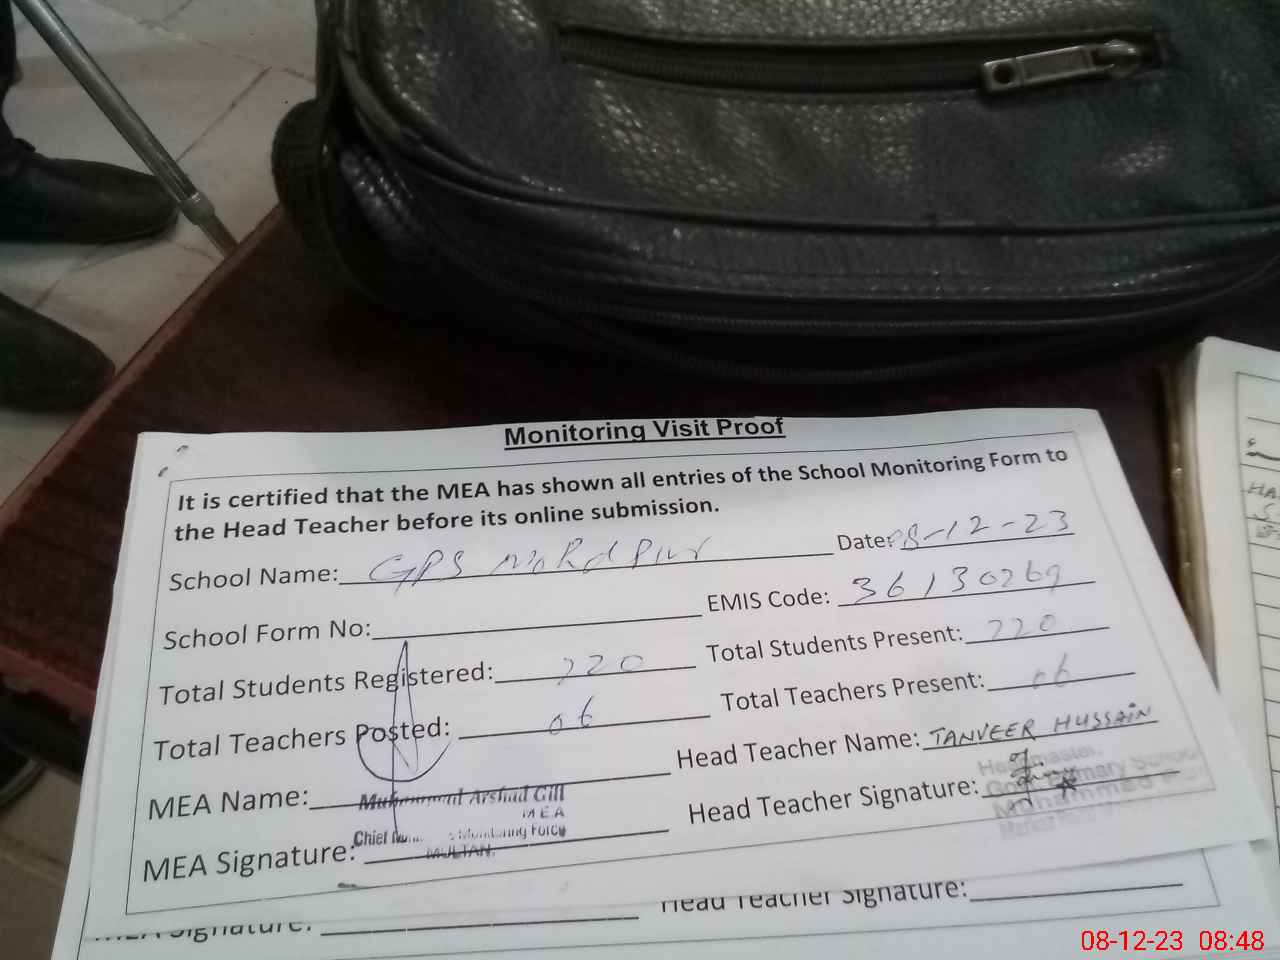 Monitoring Visit Proof
It is certified that the MEA has shown all entries of the School Monitoring Form to
the Head Teacher before its online submission.
School Name: GPS Date: 08-12-23
School Form No: EMIS Code: 36130269
Total Students Registered: 220 Total Students Present: 220
Total Teachers Posted: 06 Total Teachers Present: 06
MEA Name: Muhammad Arshad Gill Head Teacher Name: TANVEER HUSSAIN
MEA
Chief Monitoring Force
MULTAN.
MEA Signature: Head Teacher Signature:
Headmaster,
Govt. Primary School
Muhammad
MEA Signature: Head Teacher Signature:
08-12-23 08:48